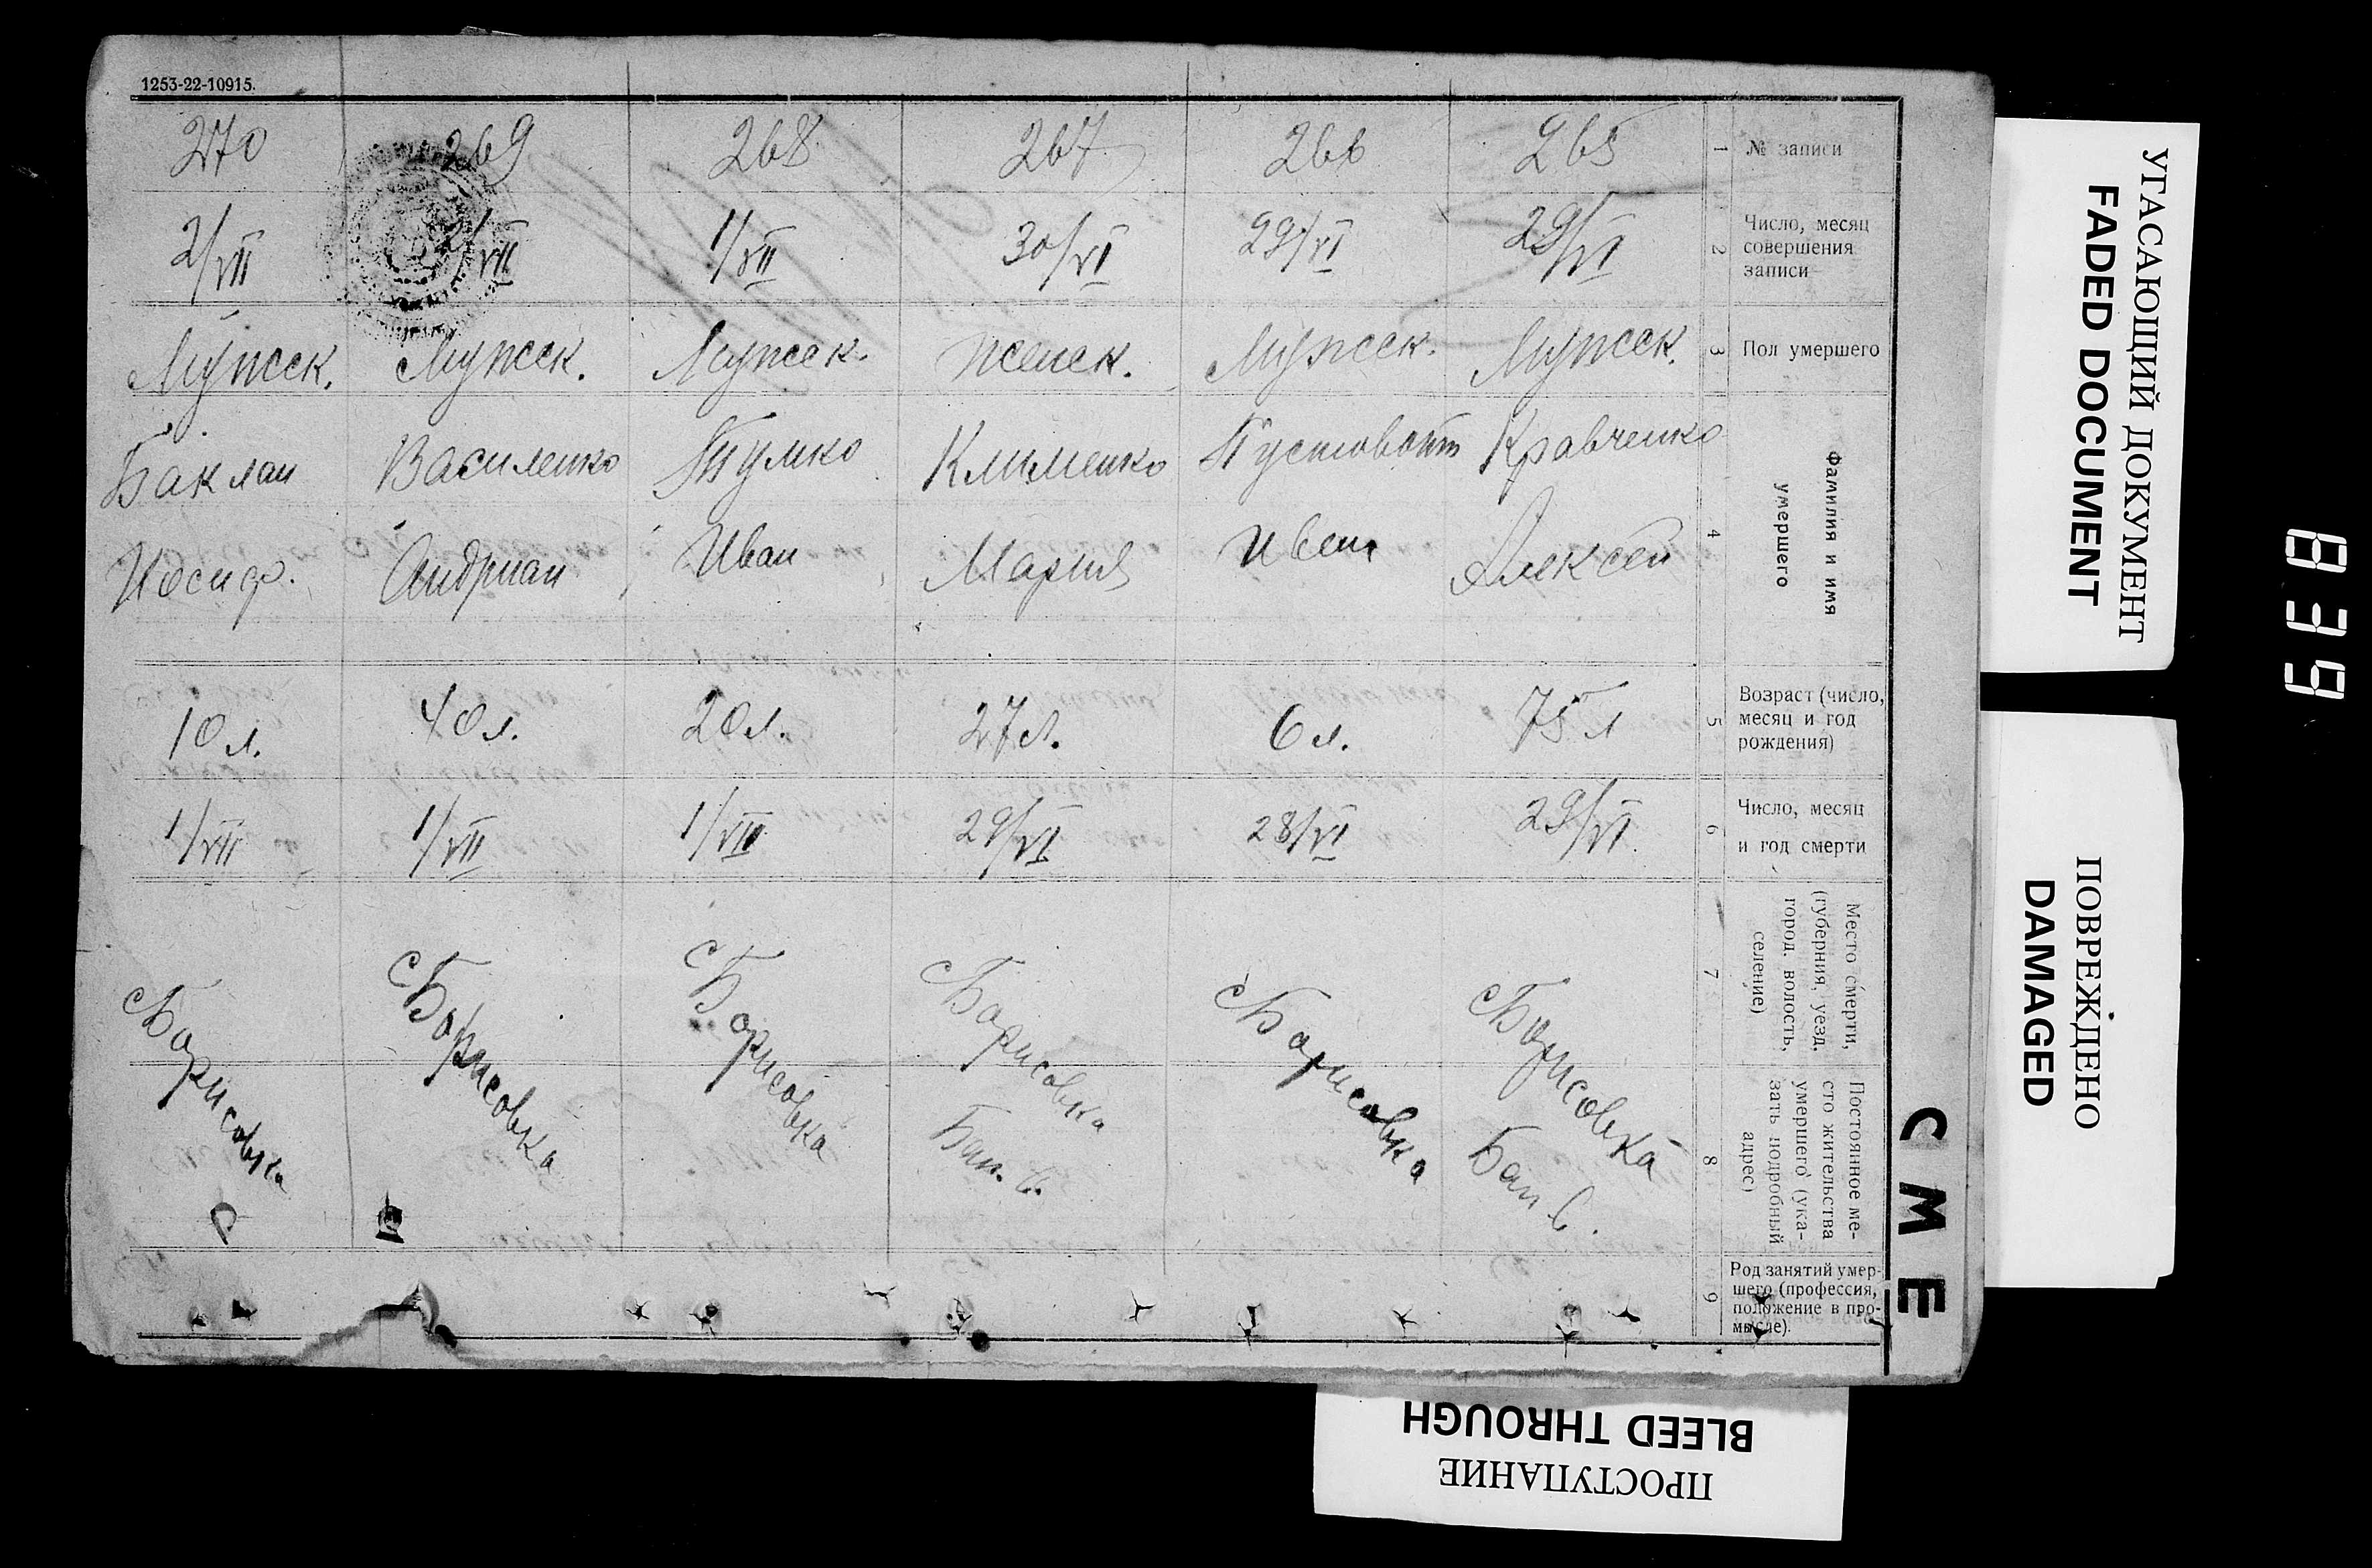 1253-22-10915.
270 269 268 267 266 265 1 № записи
2/VII 2/VII 1/VII 30/VI 29/VI 29/VI 2 Число, месяц
совершения
записи
Мужск. Мужск. Мужск. женск. Мужск. Мужск. 3 Пол умершего
Баклан Василенко Тумко Клименко Пустовойт Кравченко
Иосиф. Андриан Иван Мария Иван Алексей
4 Фамилия и имя
умершего
10 л. 40 л. 20 л. 27 л. 6 л. 75 л
5 Возраст (число,
месяц и год
рождения)
1/VII 1/VII 1/VII 29/VI 28/VI 29/VI.
6 Число, месяц
и год смерти
с Борисовка с Борисовка с Борисовка с Борисовка с Борисовка с Борисовка
7 Место смерти,
(губерния, уезд,
город, волость,
селение)
8 Постоянное ме-
сто жительства
умершего (ука-
зать подробный
адрес)
9 Род занятий умер-
шего (профессия,
положение в про-
мысле).
СМЕ
УГАСАЮЩИЙ ДОКУМЕНТ
FADED DOCUMENT
ПОВРЕЖДЕНО
DAMAGED
ПРОСТУПАНИЕ
BLEED THROUGH
839